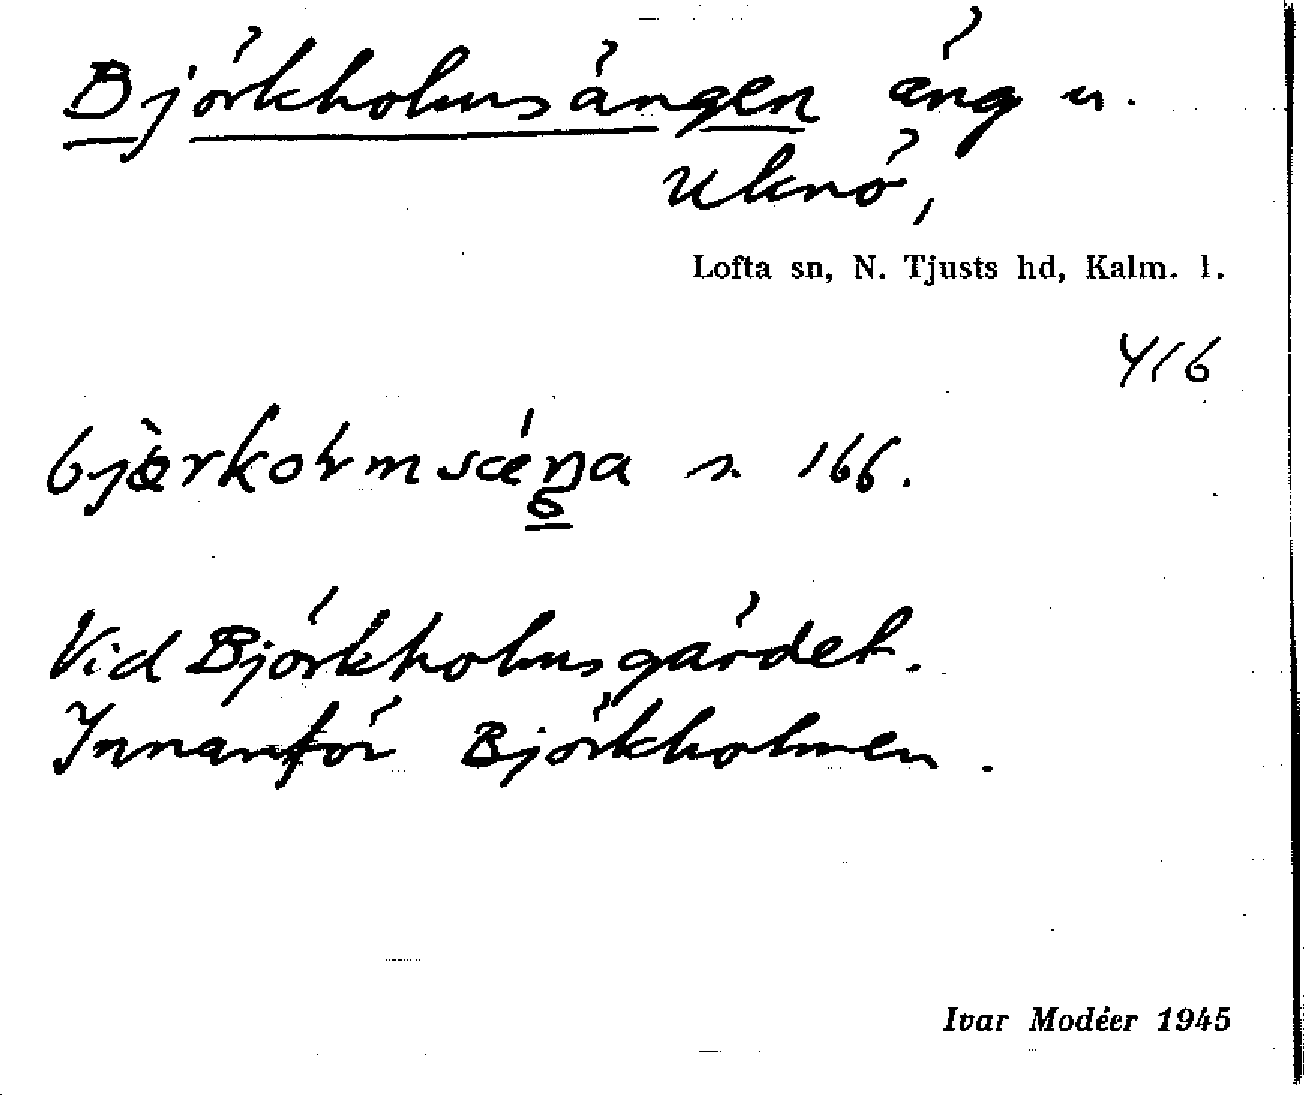 Björkholmsängen äng u.
Uknö,
Lofta sn, N. Tjusts hd, Kalm. l.
416
s. 166.
Vid Björkholmsgärdet.
Innanför Björkholmen.
Ivar Modéer 1945